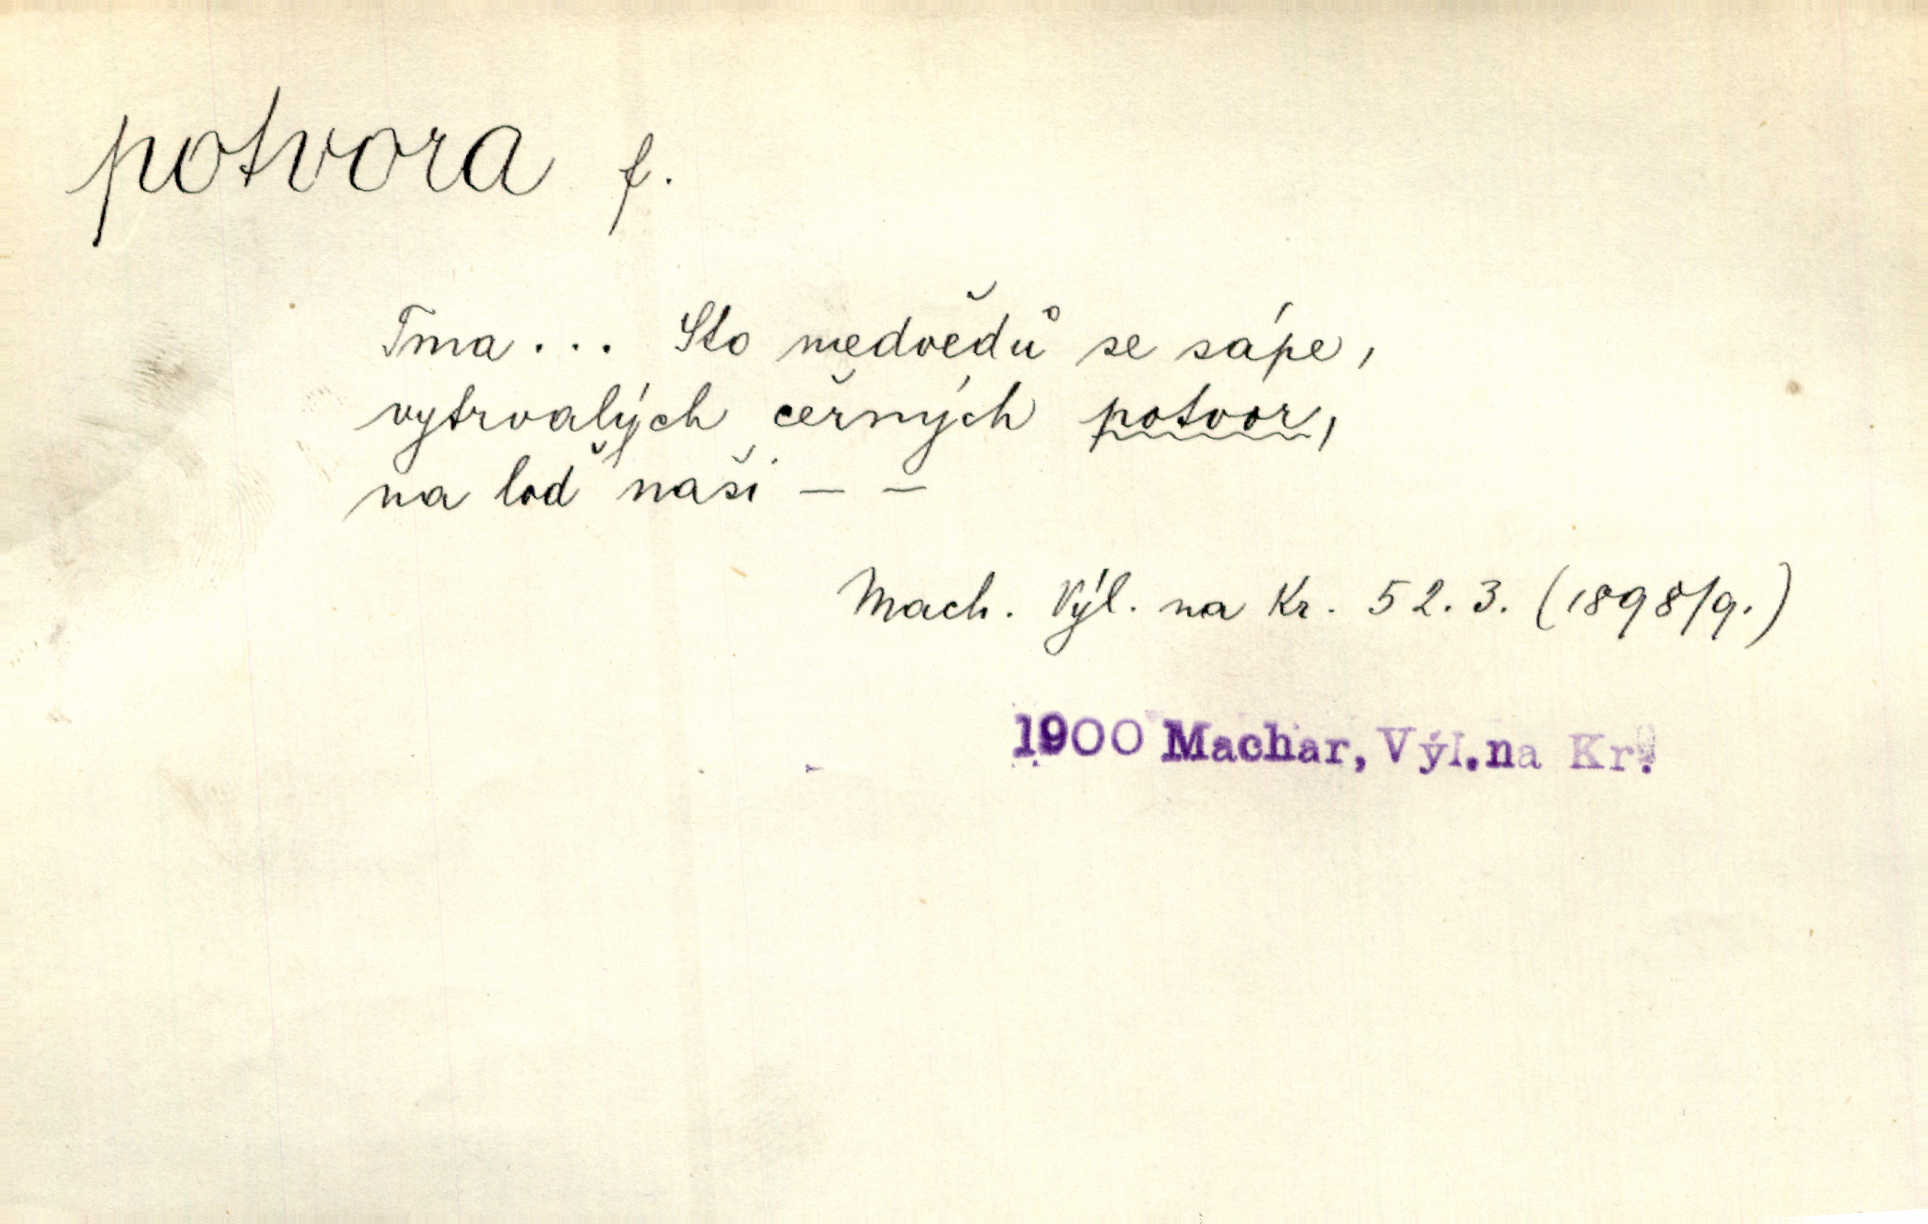 potvora f.
Tma... Sto medvědů se sápe,
vytrvalých černých potvor,
na loď naši – –
Mach. Výl. na Kr. 52.3. (1898/9.)
1900 Machar, Výl. na Kr.